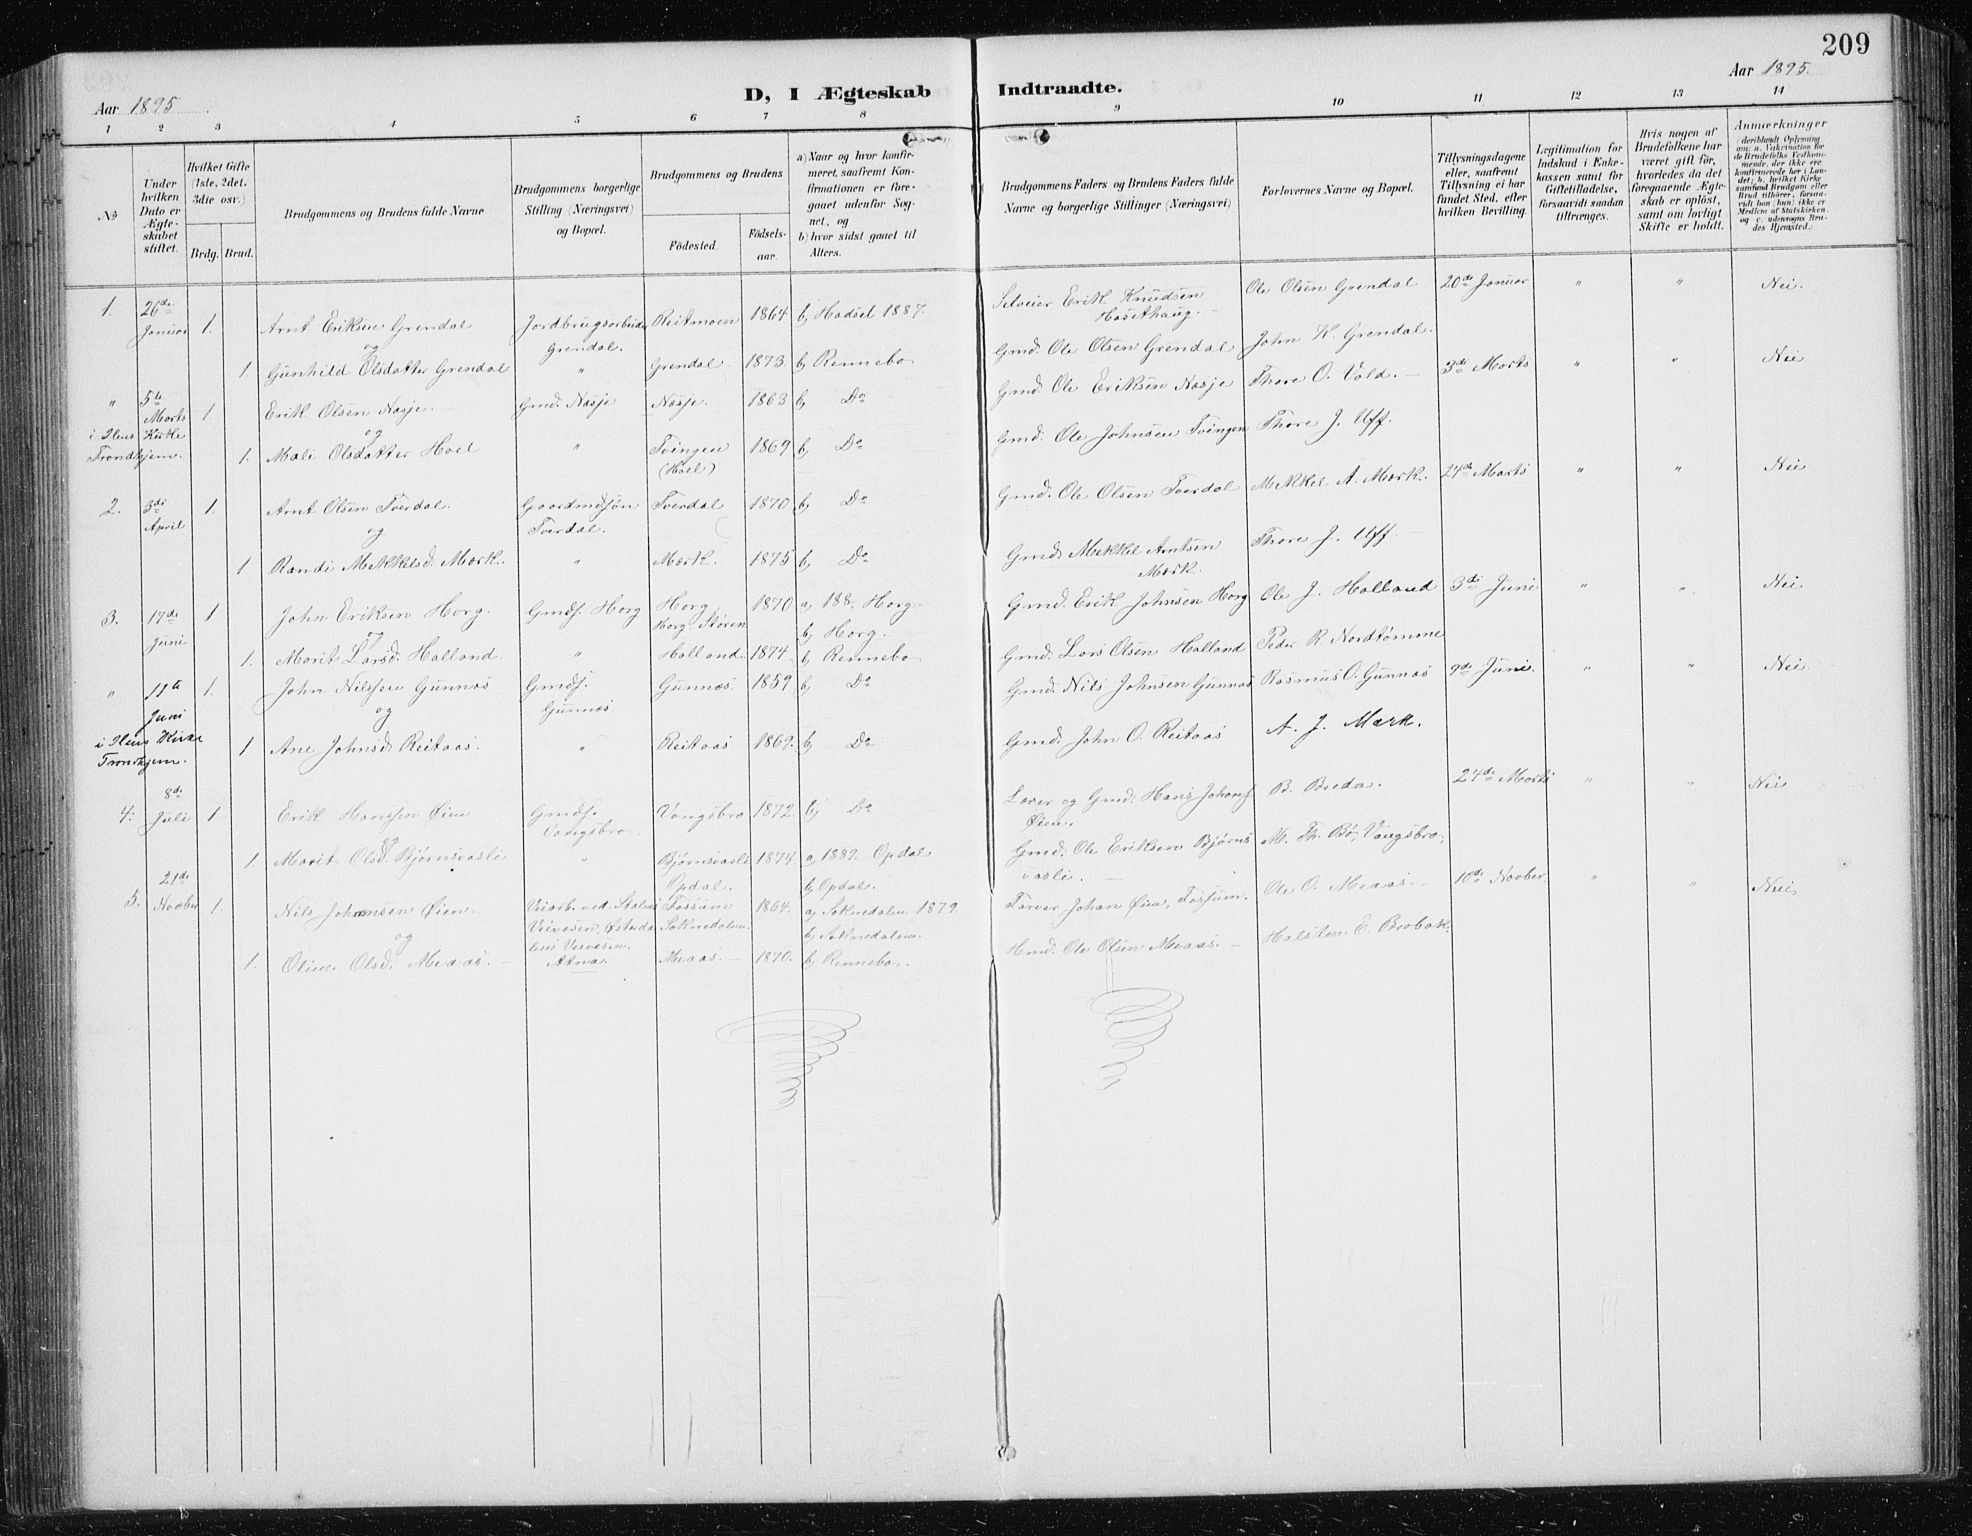 209
Aar 1895
D, I Ægteskab Indtraadte.
Aar 1895.
1 2 3 4 5 6 7 8 9 10 11 12 13 14
No
Under hvilken Dato er Ægteskabet stiftet.
Hvilket Gifte (1ste, 2det, 3die osv.)
Brdg. Brud.
Brudgommens og Brudens fulde Navne
Brudgommens borgerlige Stilling (Næringsvei) og Bopæl.
Brudgommens og Brudens
Födested. Födselsaar.
a) Naar og hvor konfirmeret, saafremt Konfirmationen er foregaaet udenfor Sognet, og
b) hvor sidst gaaet til Alters.
Brudgommens Faders og Brudens Faders fulde Navne og borgerlige Stillinger (Næringsvei)
Forlovernes Navne og Bopæl.
Tillysningsdagene eller, saafremt Tillysning ei har fundet Sted, efter hvilken Bevilling.
Legitimation for Indskud i Enkekassen samt for Giftetilladelse, forsaavidt saadan tiltrænges.
Hvis nogen af Brudefolkene har været gift før, hvorledes da det foregaaende Ægteskab er oplöst, samt om lovligt Skifte er holdt.
Anmærkninger
(deriblandt Oplysning om: a. Vakcination for de Brudefolks Vedkommende, der ikke ere konfirmerede her i Landet; b. hvilket Kirkesamfund Brudgom eller Brud tilhører, forsaavidt han (hun) ikke er Medlem af Statskirken, og c. udensogns Brudes Hjemsted.)
1. 26de Januar 1. Arnt Eriksen Grendal Jordbrugsarbeider Grendal. Reitmoen 1864 b) Hadsel 1887. Selveier Erik Knudsen Hosethaug. Ole Olsen Grendal 20de Januar " " Nei.
og
1. Gunhild Olsdatter Grendal " Grendal 1873. b) Rennebo Gmd. Ole Olsen Grendal John K. Grendal.
" 5te Marts i Ilens Kirke Trondhjem. 1. Erik Olsen Nasje. Gmd. Nasje Nasje. 1863 b) Do Gmd. Ole Eriksen Nasje Thore O. Vold. 3di Marts " " Nei
og
1. Mali Olsdatter Hoel " Tvingen (Hoel) 1869 b) Do Gmd. Ole Johnsen Tvingen Thore J. Uff.
2. 3di April 1. Arnt Olsen Tverdal. Gaardmdssøn Tverdal. Tverdal 1870 b) Do Gmd. Ole Olsen Tverdal Mekkel A. Mærk. 24de Marts " " Nei
og
1 Randi Mekkelsd. Mærk. " Mærk. 1875 b) Do Gmd. Mekkel Arntsen Mærk. Thore J. Uff
3. 17de Juni 1 John Eriksen Horg. Gmds. Horg Horg Horg Støren 1870 a) 188 Horg. b) Horg. Gmd. Erik Johnsen Horg Ole J. Halland 3di Juni " " Nei
og
1. Marit Larsd. Halland. " Halland. 1874. b) Rennebo Gmd. Lars Olsen Halland Peder R. Nordtømme
" 11te Juni i Ilens Kirke Trondhjem. 1. John Nilssen Gunnæs Gmds. Gunnæs Gunnæs. 1859 b) Do Gmd. Nils Johnsen Gunnæs Rasmus O. Gunnæs 9de Juni. " " Nei.
og
1 Ane Johnsd. Reitaas. " Reitaas 1869. b) Do Gmd. John O. Reitaas A. J. Mærk.
4. 8de Juli 1 Erik Hanssen Øien Gmds. Vangsbro. Vangsbro 1872. b) Do Lærer og Gmd. Hans Johans. Øien. B. Breda. 24de Marts " " Nei
og
1. Marit Olsd. Bjørnsvasli " Bjørnsvasli Opdal. 1874. a) 1889. Opdal b) Opdal. Gmd. Ole Eriksen Bjørnsvasli. M. Th. Bø, Vangsbro,
5. 21de Novber 1. Nils Johansen Øien. Veiarb. ved Statens Veivæsen, Østerdalens Veivæsen. Atna. Fossum Soknedalen. 1864. a) Soknedalen 1879. b) Soknedalen. Farver Johan Øien, Fossum. Ole O. Meaas. 10de Novber. " " Nei,
og
1. Oline Olsd. Meaas. Meaas. 1870. b) Rennebo. Hmd. Ole Olsen Meaas. Halsten E. Brobak.